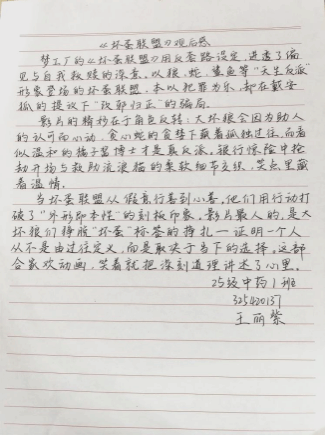 《坏蛋联盟》观后感
梦工厂的《坏蛋联盟》用反套路设定,进透了偏
见与自我救赎的深意。以狼、蛇、鲨鱼等"天生反派"
形象登场的坏蛋联盟,本以犯罪为乐,却在戴安
狐的提议下"改邪归正"的骗局。
影片的精妙在于角色反转:大坏狼会因为助人
的认可而心动,贪心蛇的贪婪下藏着孤独过往,而看
似温和的橘子酱博士才是真反派。银行惊险中抢
劫开场与救助流浪猫的柔软细节交织,笑点里藏
着温情。
当坏蛋联盟从假意行善到小善,他们用行动打
破了"外形即本性"的刻板印象。影片最人的,是大
坏狼们挣脱"坏蛋"标签的挣扎—证明一个人
从不是由过往定义,而是取决于当下的选择。这部
合家欢动画,笑着就把深刻道理讲进了心里。
25级中药1班
325420137
王丽紫